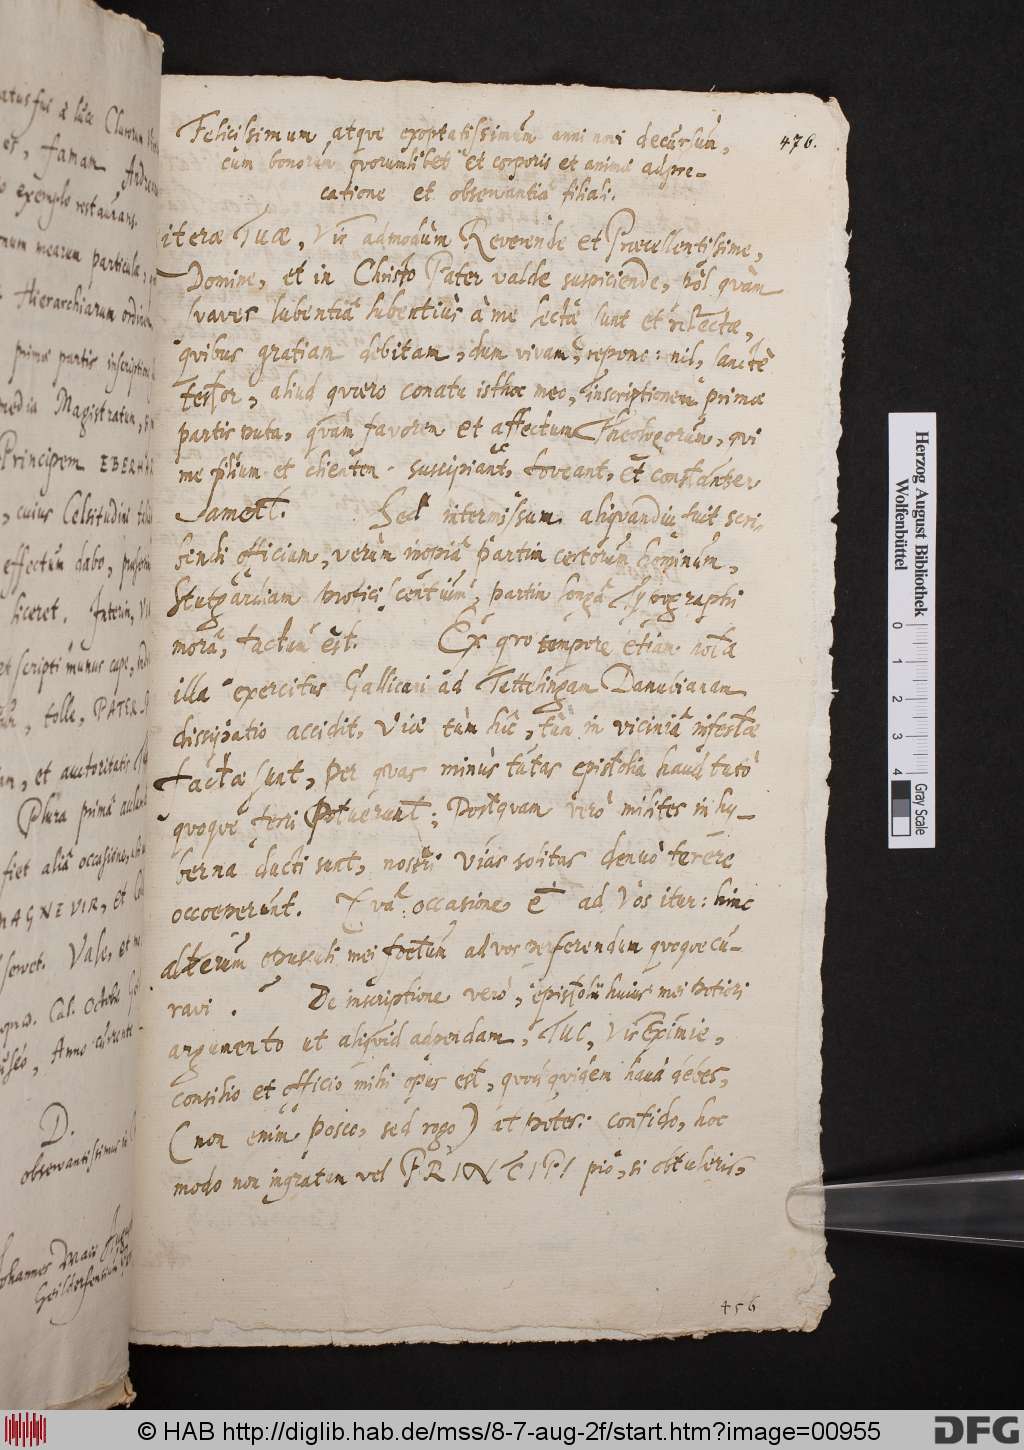 atus sui à luce Clarorum
et, famam Andreæ
exemplo restaurans.
rum mearum particula,
Hierarchiarum ordinem
primæ partis inscriptio
media Magistratum,
Principem EBERHAR
, cuius Celsitudini
effectum dabo,
liceret. Interim, VI
et scripti munus cape,
tolle, PATER
, et auctoritatis
Plura primâ
fiet aliâ occasione,
MAGNE VIR, et
servet. Vale, et
Cal. Octobr.
Anno
D.
observantissimus
Johannes
476.
Felicissimum atque exoptatissimum anni novi decursum,
cum bonorum quorumlibet et corporis et animi adpre-
catione et observantia filiali.
iteræ Tuæ, Vir admodùm Reverende et Præcellentissime,
Domine, et in Christo Pater valde suspiciende, pól quàm
svaves lubentiâ lubentiùs à me lectæ sunt et relectæ,
quibus gratiam debitam, dum vivam, repono: nil, sanctè
testor, aliud quæro conatu isthoc meo, inscriptionem primæ
partis puta, quàm favorem et affectum Theologorum, qui
me filium et clientem suscipiant, foveant, et constanter
ament. Sed intermissum aliquandiu fuit scri-
bendi officium, verùm inopiâ partim certorum hominum,
Stutgardiam proficiscentium, partim longâ Typographi
morâ, factum est. Ex quo tempore etiam nota
illa exercitus Gallicani ad Tuttelingam Danubianam
dissipatio accidit, Viæ tùm hîc, tùm in viciniâ infestæ
factæ sunt, per quas minùs tutas epistolia haud tutò
quoque ferri potuerunt; Postquam verò milites in hy-
berna ducti sunt, nostri vias solitas denuò terere
occoeperunt. Quâ occasione è ad Vos itur: hinc
alterum opusculi mei foetum ad vos perferendum quoque cu-
ravi. De inscriptione verò, epistolii huius mei potiori
argumento ut aliquid adpendam, TUI, Vir Eximie,
consilio et officio mihi opus est, quod quidem haud debes,
(non enim posco, sed rogo) at potes: confido, hoc
modo non ingratum vel PRINCIPI pio, si obtuleris,
456
Herzog August Bibliothek
Wolfenbüttel
0 1 2 3 4
Gray Scale
© HAB http://diglib.hab.de/mss/8-7-aug-2f/start.htm?image=00955
DFG